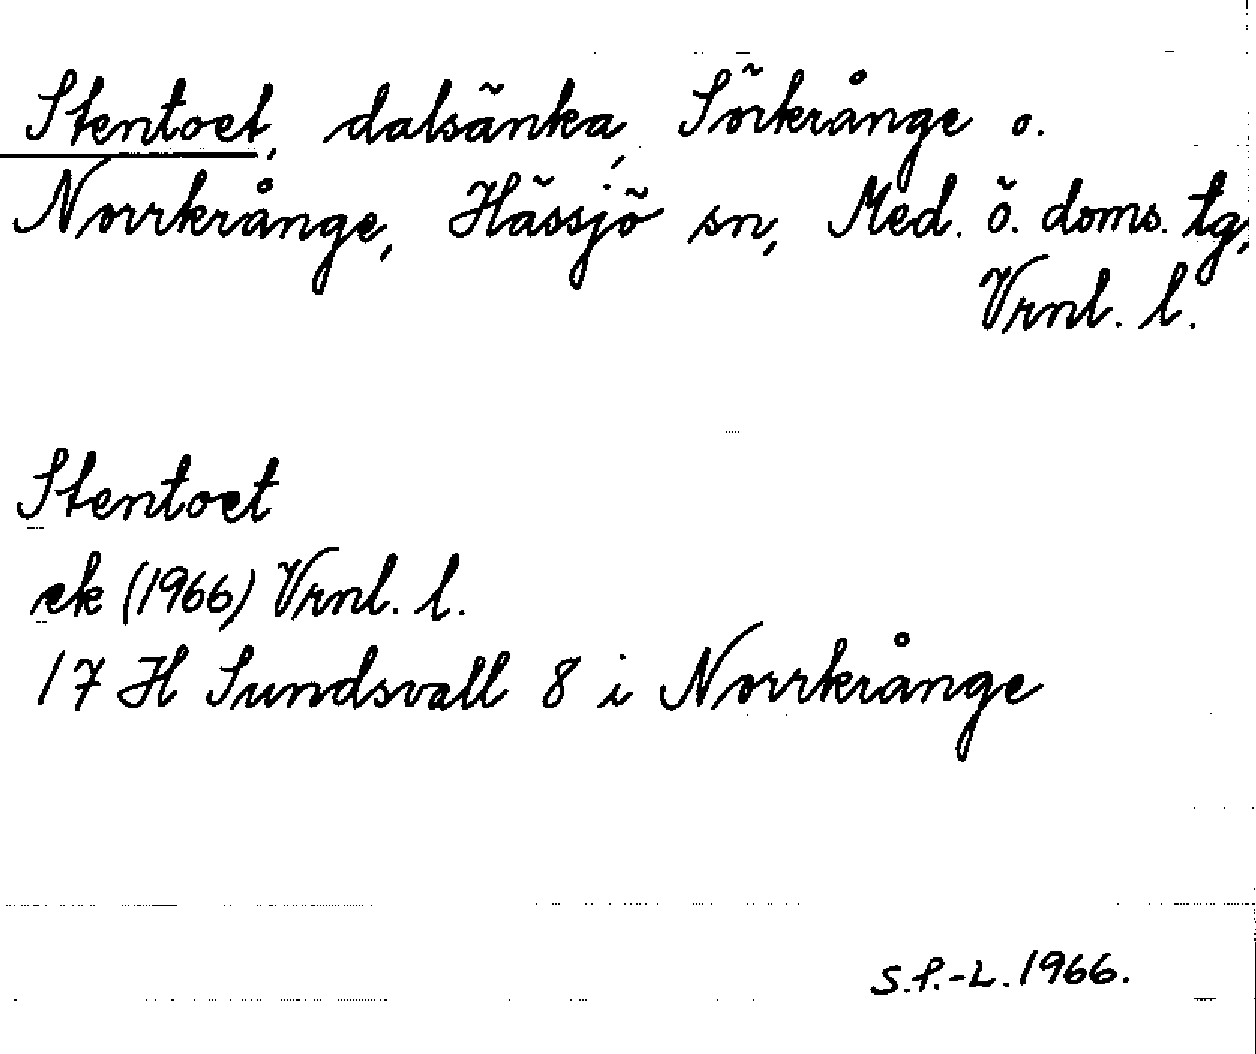 Stentoet, dalsänka, Sörkrånge o.
Norrkrånge, Hässjö sn, Med. ö. doms. tg,
Vrnl. l.
Stentoet
ek (1966) Vrnl. l.
17 H Sundsvall 8 i Norrkrånge
S.P.-L. 1966.